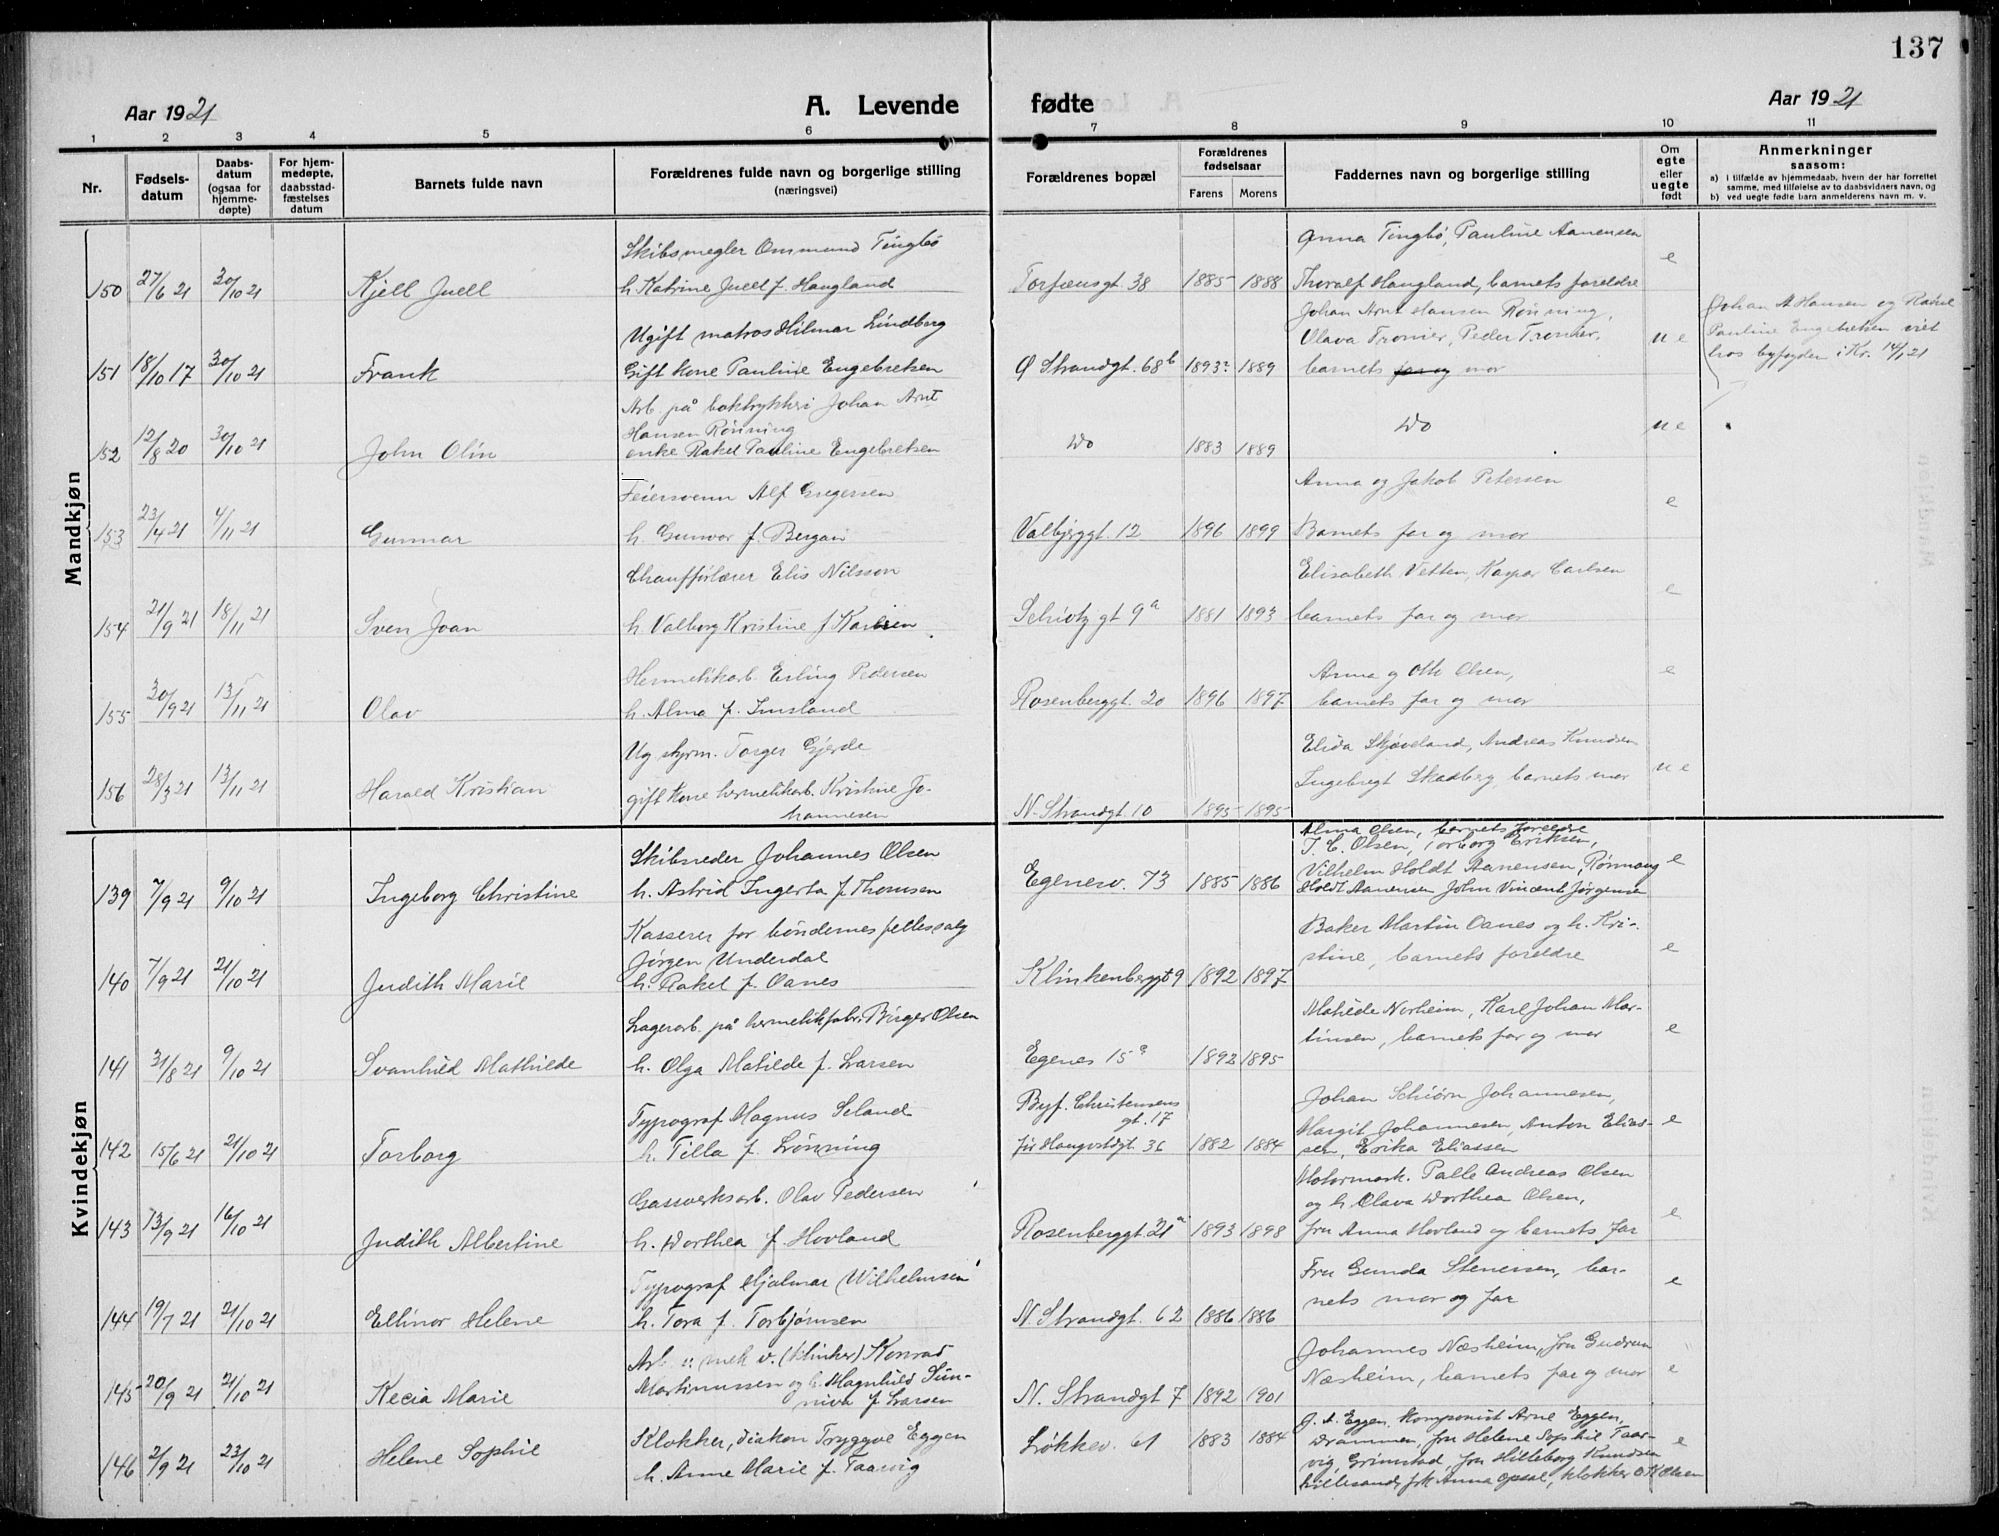 137
Aar 1921
A. Levende fødte
Aar 1921
1 2 3 4 5 6 7 8 9 10 11
Nr.
Fødsels-
datum
Daabs-
datum
(ogsaa for
hjemme-
døpte)
For hjem-
medøpte,
daabsstad-
fæstelses
datum
Barnets fulde navn
Forældrenes fulde navn og borgerlige stilling
(næringsvei)
Forældrenes bopæl
Forældrenes
fødselsaar
Farens Morens
Faddernes navn og borgerlige stilling
Om
egte
eller
uegte
født
Anmerkninger
saasom:
a) i tilfælde av hjemmedaab, hvem der har forrettet
samme, med tilføielse av to daabsvidners navn, og
b) ved uegte fødte barn anmelderens navn m. v.
Mandkjøn
Skibsmegler Ommund Tingbø
Anna Tingbø, Pauline Aanensen
150 27/6 21 30/10 21 Kjell Juell h. Katrine Juell f. Haugland Torfæusgt. 38 1885 1888 Thoralf Haugland, barnets foreldre e
Ugift matros Hilmar Lindberg
Johan Arnt Hansen Rönning,
Olava Tromier, Peder Tromier,
151 18/10 17 30/10 21 Frank Gift kone Pauline Engebretsen Ø Strandgt. 68b 1893 1889 barnets far og mor u e
Johan A Hansen og Rakel
Pauline Engebretsen viet
hos byfogden i Kr. 14/1 21
Arb. på boktrykkeri Johan Arnt
Hansen Rönning
152 12/8 20 30/10 21 John Olin enke Rakel Pauline Engebretsen Do 1883 1889 Do u e
Feiersvenn Alf Gregersen
Anna og Jakob Petersen
153 23/4 21 4/11 21 Gunnar h. Gunvor f. Bergan Valbjerggt. 12 1896 1899 Barnets far og mor e
Chaufførlærer Elis Nilsson
Elisabeth Vetten, Kaspar Carlsen
154 21/9 21 18/11 21 Sven Joan h. Valborg Kristine f Karlsen Schiøtz gt 9a 1881 1893 barnets far og mor e
Hermetikarb. Erling Pedersen
Anna og Otto Olsen,
155 30/9 21 13/11 21 Olav h. Alma f. Imsland Rosenberggt. 20 1896 1897 barnets far og mor e
Ug styrm. Torger Gjerde
Elida Skjæveland, Andreas Knudsen
156 28/3 21 13/11 21 Harald Kristian gift kone hermetikarb. Kristine Jo-
hannesen N. Strandgt. 10 1895 1895 Ingebregt Skadberg, barnets mor u e
Kvindekjøn
Skibsreder Johannes Olsen
Alma Olsen, barnets foreldre
T. C. Olsen, Torborg Eriksen,
Vilhelm Holdt Aanensen,
139 7/9 21 9/10 21 Ingeborg Christine h. Astrid Ingerta f. Thomsen Egenesv. 73 1885 1886 Holdt Aanensen John Vincent Jørgensen e
Kasserer for böndernes fellessalg
Jørgen Underdal
Baker Martin Oanes og h. Kri-
140 7/9 21 21/10 21 Judith Marie h. Rakel f. Oanes Klinkenberggt 9 1892 1897 stine, barnets foreldre e
Lagerarb. på hermetikfabr. Birger Olsen
Matilde Norheim, Karl Johan Mar-
141 31/8 21 9/10 21 Svanhild Mathilde h. Olga Matilde f. Larsen Egenes 15a 1892 1895 tinsen, barnets far og mor e
Typograf Magnus Seland
Byf. Christensens
gt. 17
Johan Schiörn Johannesen,
Margit Johannesen, Anton Elias-
142 15/6 21 21/10 21 Torborg h. Tilla f. Lönning før Haugvaldgt. 36 1882 1884 sen, Erika Eliassen e
Gassverksarb. Olav Pedersen
Motormask. Palle Andreas Olsen
og h Olava Dorthea Olsen,
143 13/9 21 16/10 21 Judith Albertine h. Dorthea f. Hovland Rosenberggt. 21a 1893 1898 fru Anna Hovland og barnets far e
Typograf Hjalmar Wilhelmsen
Fru Gunda Stenersen, bar-
144 19/7 21 21/10 21 Ellinor Helene h. Tora f. Torbjørnsen N. Strandgt. 62 1886 1886 nets mor og far e
Arb. v. mek v. (klinker) Konrad
Johannes Næsheim, fru Gudrun
145 20/9 21 21/10 21 Kecia Marie Martinussen og h. Magnhild Sun-
niva f Larsen N. Strandgt 7 1892 1901 Næsheim, barnets far og mor e
146 2/9 21 23/10 21 Helene Sophie Klokker, diakon Tryggve Eggen
h. Anne Marie f. Taarvig Løkkev. 61 1883 1884 J. A. Eggen, Komponist Arne Eggen,
Drammen, fru Helene Sophie Taar-
vig, Grimstad, fru Hilleborg Knudsen
Lillesand, frk Anna Opsal, klokker O K Olsen e